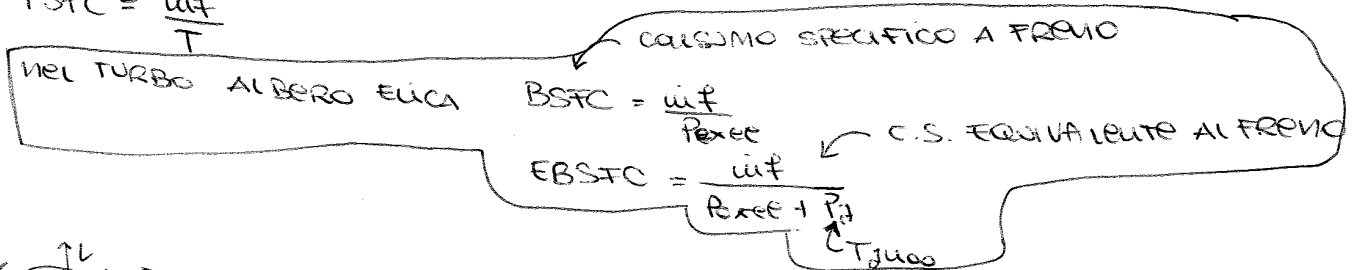 TSFC = ṁf / T
CONSUMO SPECIFICO A FRENO
NEL TURBO ALBERO ELICA BSFC = ṁf / Paxee
C.S. EQUIVALENTE AL FRENO
EBSFC = ṁf / (Paxee + Pj)
L